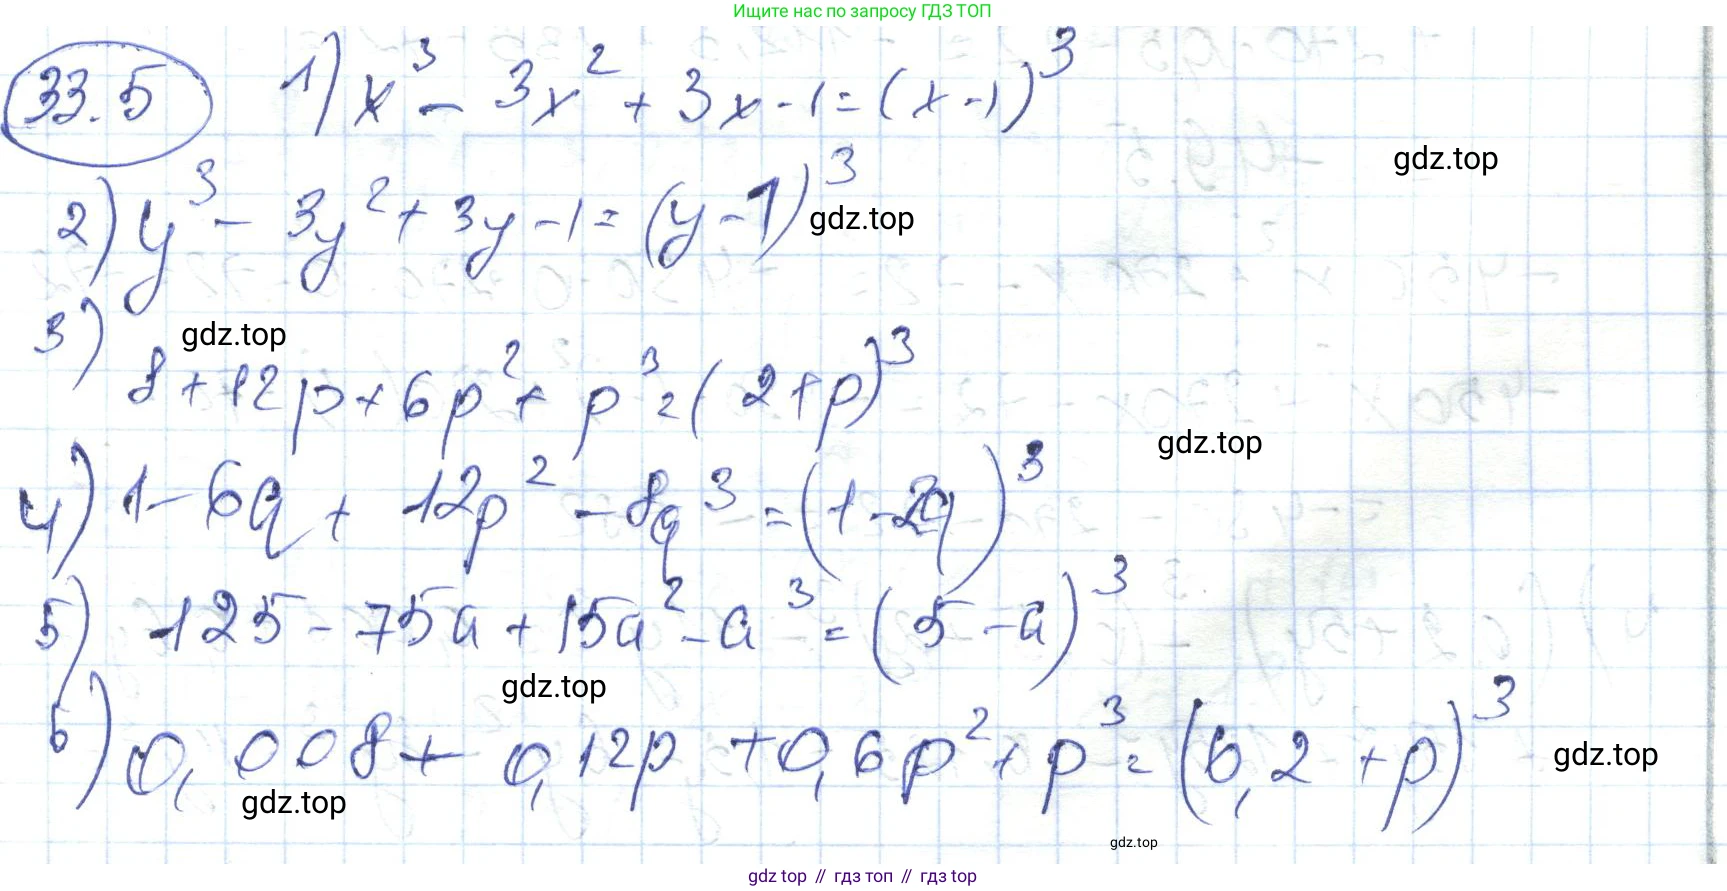 Ищите нас по запросу ГДЗ ТОП
33.5 1) x³ - 3x² + 3x - 1 = (x - 1)³
gdz.top
2) y³ - 3y² + 3y - 1 = (y - 1)³
gdz.top
3)
gdz.top
8 + 12p + 6p² + p³ = (2 + p)³
gdz.top
4) 1 - 6q + 12p² - 8q³ = (1 - 2q)³
5) 125 - 75a + 15a² - a³ = (5 - a)³
gdz.top
6) 0,008 + 0,12p + 0,6p² + p³ = (0,2 + p)³
gdz.top
gdz.top
gdz.top
gdz top // гдз топ // гдз top